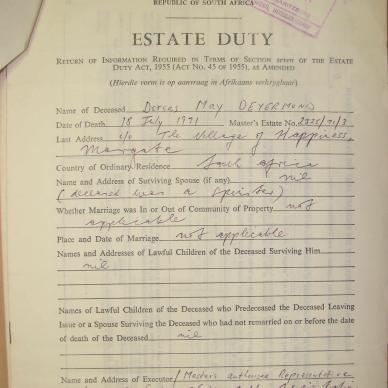 REPUBLIC OF SOUTH AFRICA
ESTATE DUTY
RETURN OF INFORMATION REQUIRED IN TERMS OF SECTION seven OF THE ESTATE
DUTY ACT, 1955 (ACT NO. 45 OF 1955), AS AMENDED
(Hierdie vorm is op aanvraag in Afrikaans verkrygbaar)
Name of Deceased Dorcas May DEYERMOND
Date of Death 18 July 1971 Master's Estate No. 2325/71/3
Last Address c/o The Village of Happiness,
Margate
Country of Ordinary Residence South Africa
Name and Address of Surviving Spouse (if any) nil
(deceased was a spinster)
Whether Marriage was In or Out of Community of Property not
applicable
Place and Date of Marriage not applicable
Names and Addresses of Lawful Children of the Deceased Surviving Him
nil
Names of Lawful Children of the Deceased who Predeceased the Deceased Leaving
Issue or a Spouse Surviving the Deceased who had not remarried on or before the date
of death of the Deceased nil
Name and Address of Executor / Master's authorised Representative